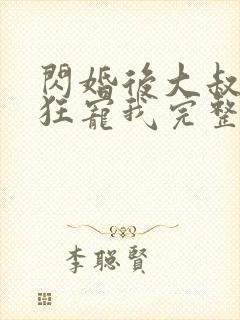 閃婚後大叔
狂寵我完整
李聰賢